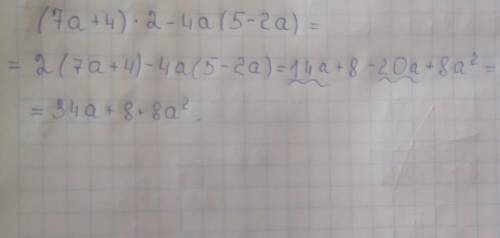 (7a+4)·2-4a(5-2a)=
=2(7a+4)-4a(5-2a)=14a+8-20a+8a²=
=34a+8+8a².